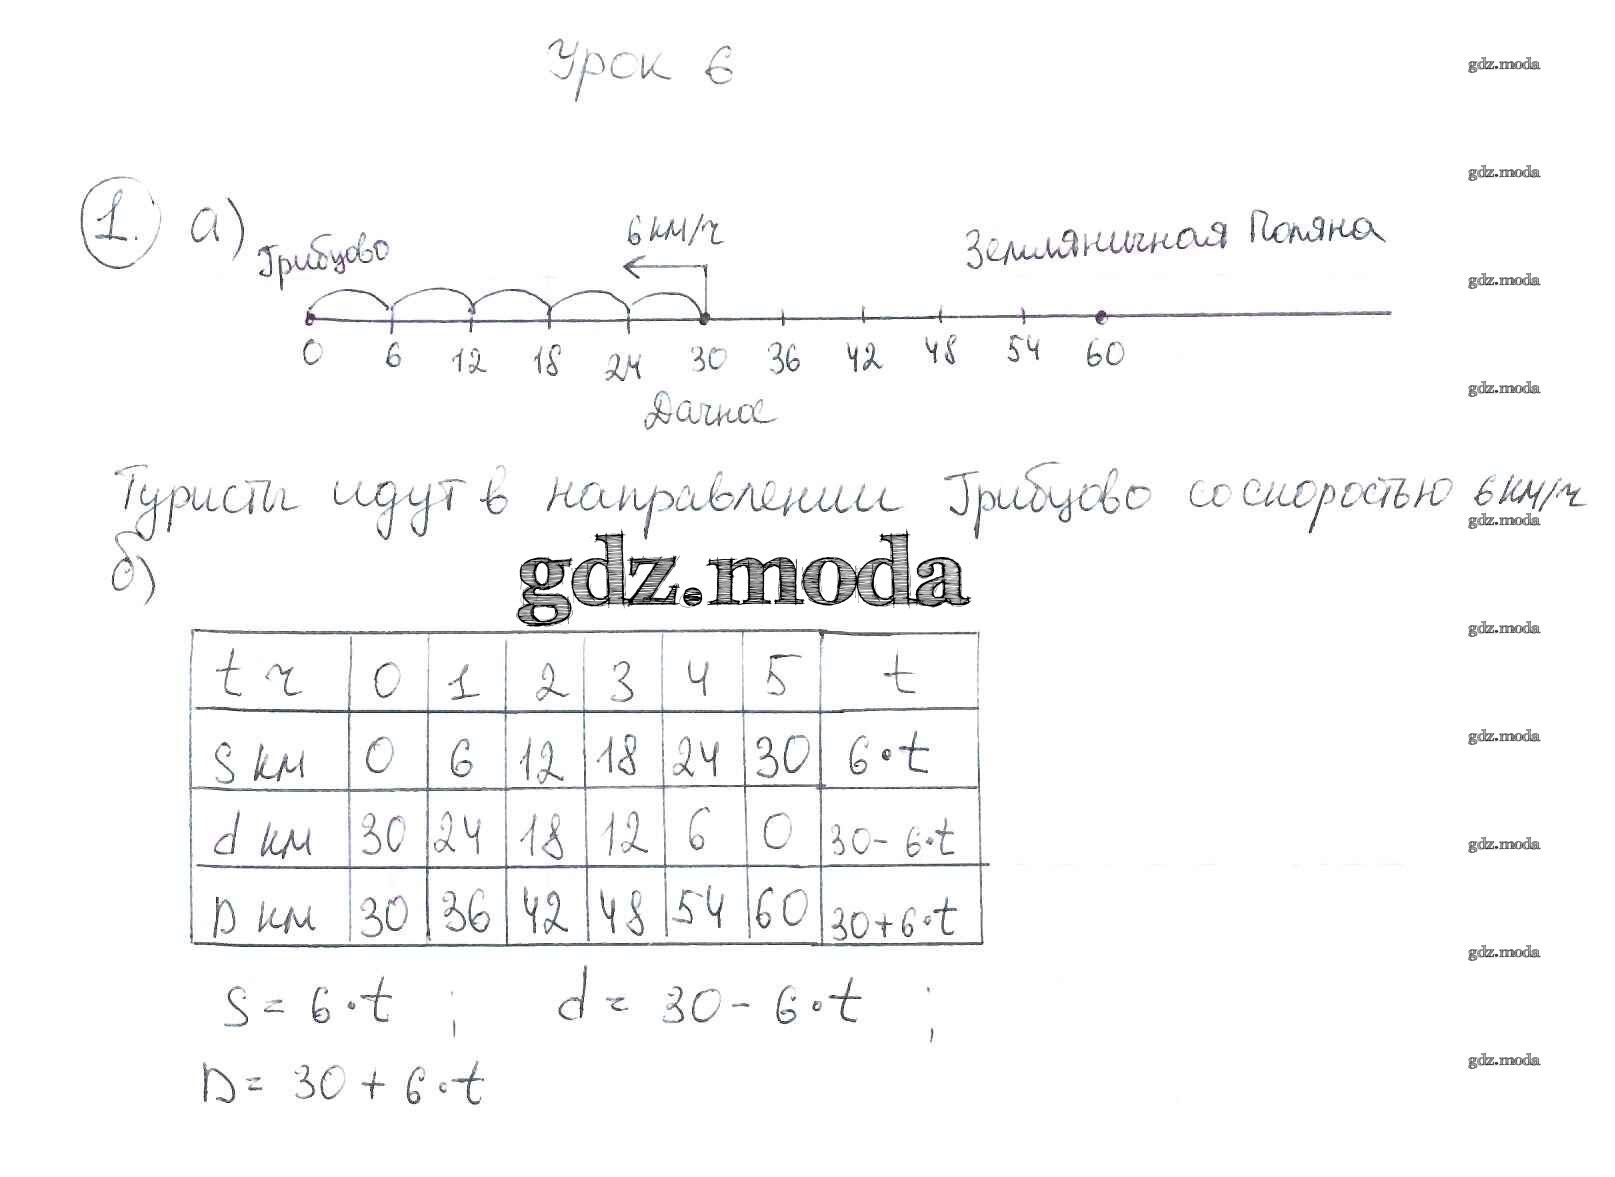 Урок 6
gdz.moda
gdz.moda
1. а)
Грибцово
6 км/ч
Земляничная Поляна
gdz.moda
0 6 12 18 24 30 36 42 48 54 60
Дачное
gdz.moda
Туристы идут в направлении Грибцово со скоростью 6 км/ч
gdz.moda
б)
gdz.moda
gdz.moda
t ч 0 1 2 3 4 5 t
S км 0 6 12 18 24 30 6·t
gdz.moda
d км 30 24 18 12 6 0 30-6·t
gdz.moda
D км 30 36 42 48 54 60 30+6·t
gdz.moda
S = 6·t ; d = 30 - 6·t ;
gdz.moda
D = 30 + 6·t